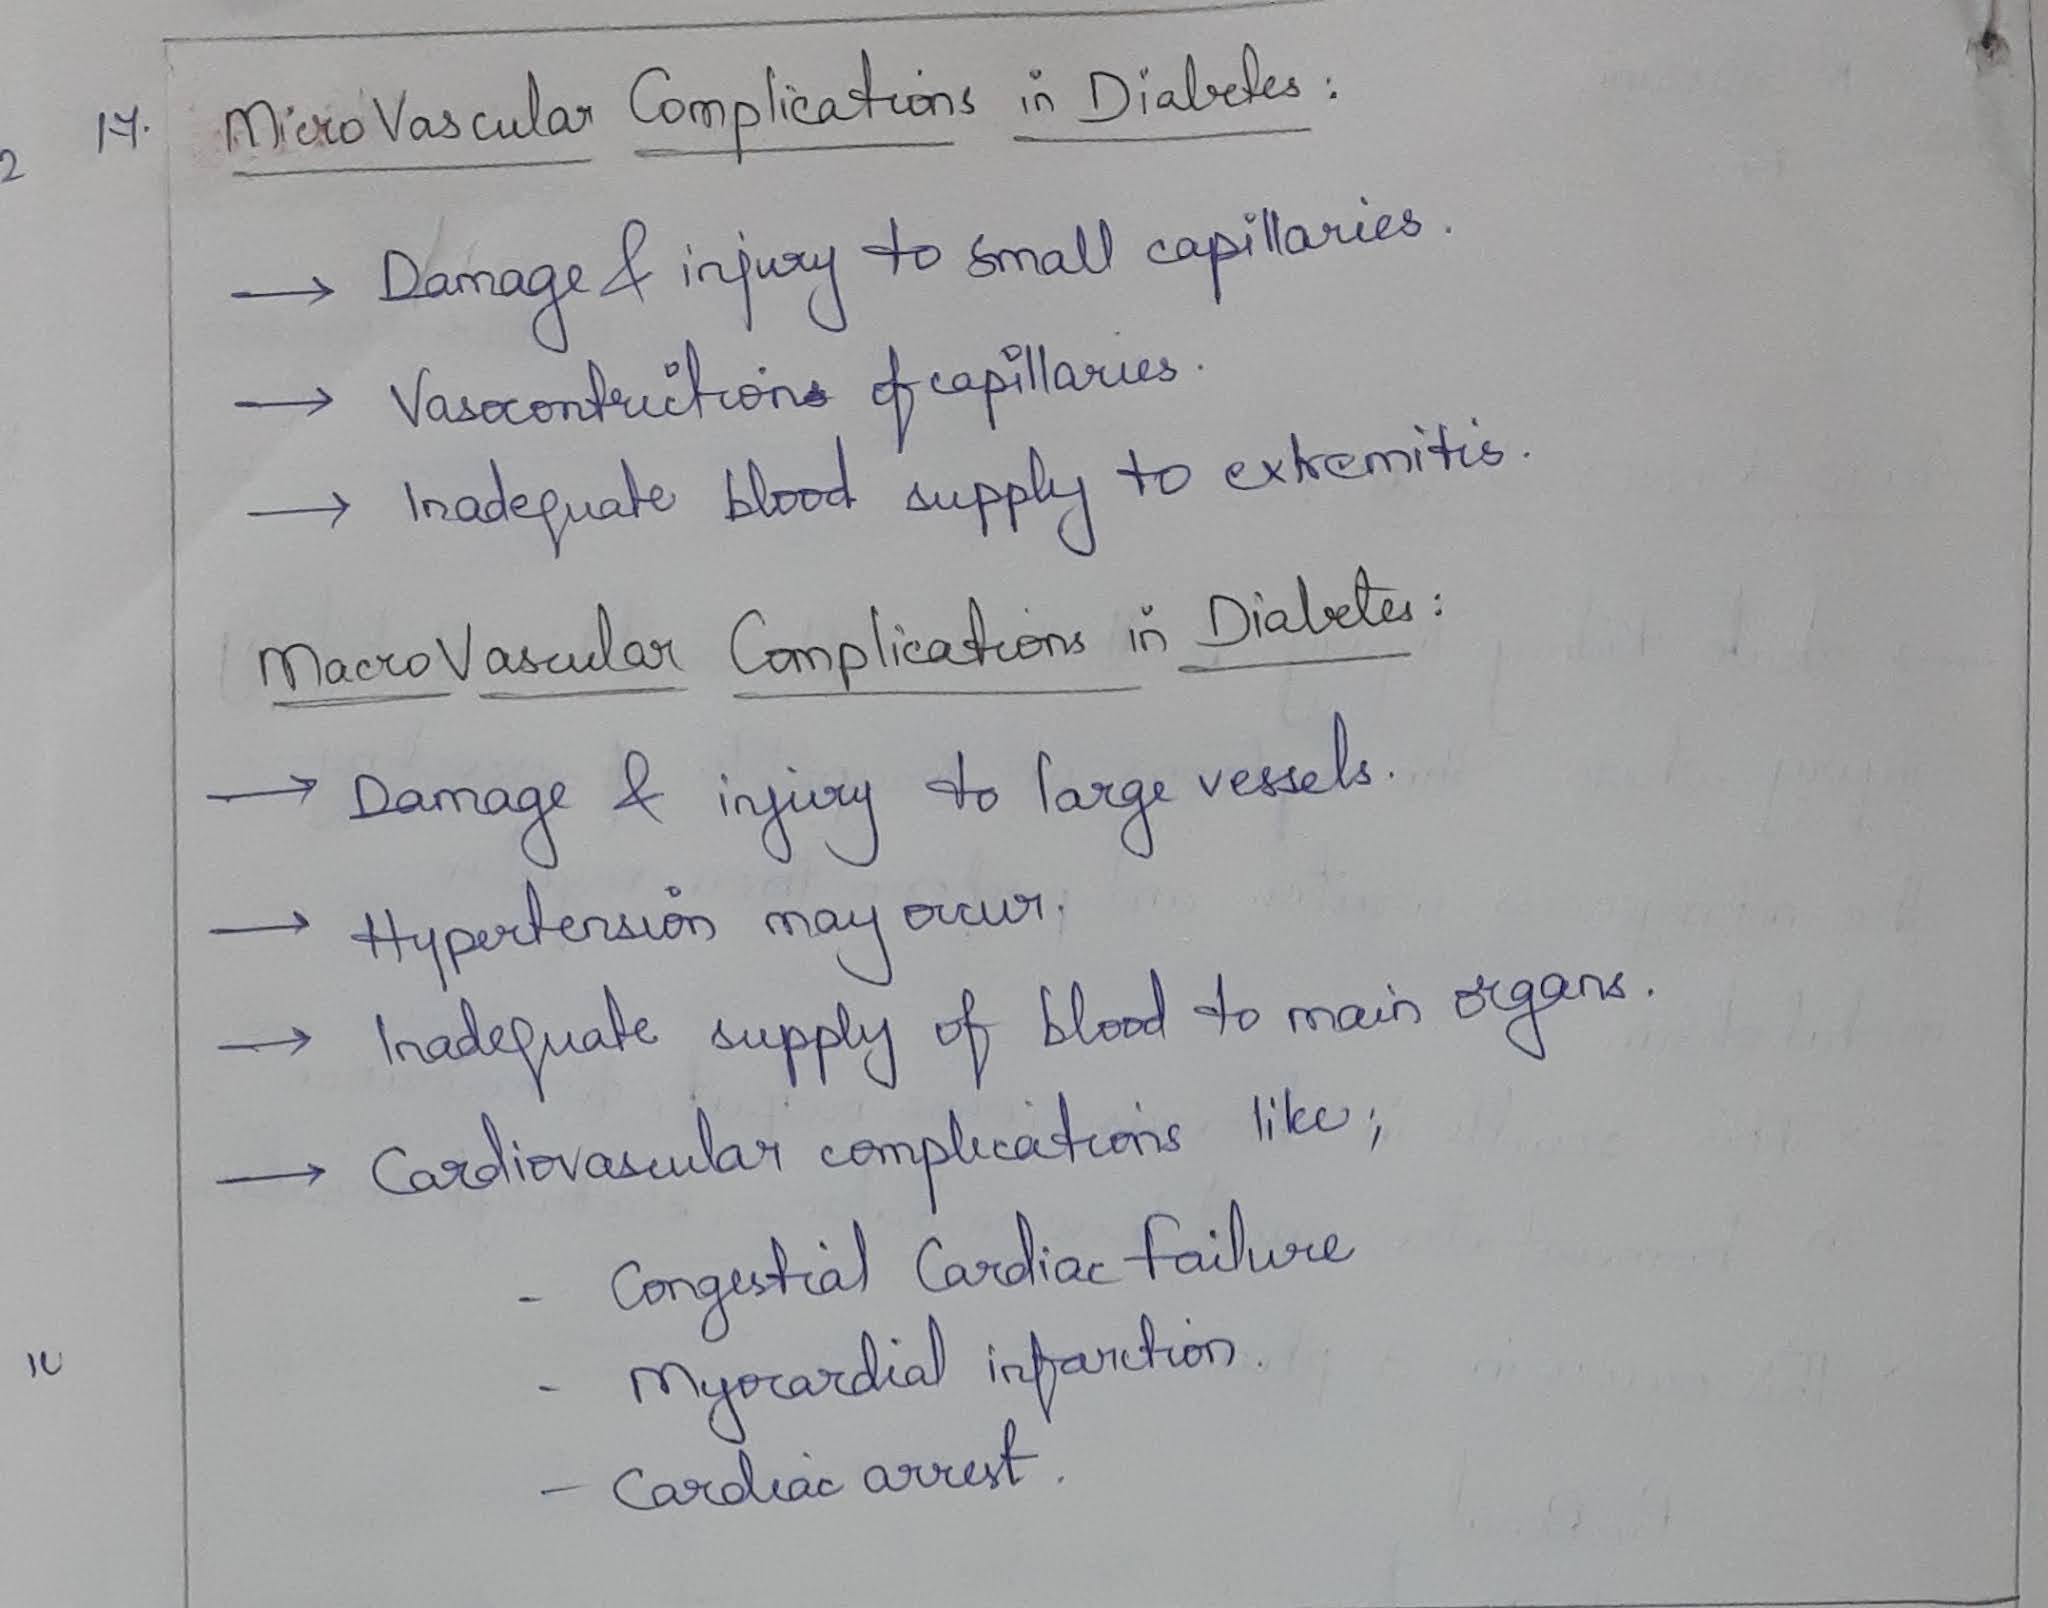 2
17. MicroVascular Complications in Diabetes:
→ Damage & injury to small capillaries.
→ Vasocontrictions of capillaries.
→ Inadequate blood supply to extremitis.
MacroVascular Complications in Diabetes:
→ Damage & injury to large vessels.
→ Hypertension may occur.
→ Inadequate supply of blood to main organs.
→ Cardiovascular complications like;
- Congestial Cardiac failure
- Myocardial infarction.
- Cardiac arrest.